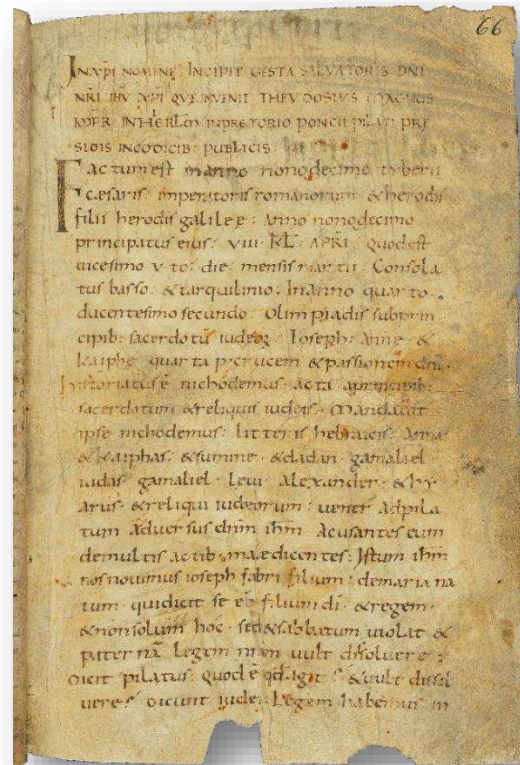 66
IN XPI NOMINE INCIPIT GESTA SALVATORIS DNI
NRI IHV XPI QVE INVENIT THEVDOSIVS MAGNVS
IN PRETORIO PONCII PILATI PRE
SIDIS IN CODICIB: PVBLICIS:
Factum est in anno nonodecimo tyberii
cæsaris imperatoris romanorum & herodis
filii herodis galileæ: Anno nonodecimo
principatus eius. VIII. KL. APRL. quod est
uicesimo v to. die mensis martii. Consola
tus basso. & tarquilinio. In anno quarto
ducentesimo secundo. Olimpiadis sub prin
cipib: sacerdotū iudeoꝝ. Ioseph. Anne. &
Kaiphe quarta p crucem & passionem dni.
historiatus ē nichodemus. acta a principib:
sacerdotum & reliquis iudeis. Mandauit
ipse nichodemus. litteris hebraicis. Annas
& Kaiphas. & summe. & dadan. gamaliel
iudas gamaliel. leui alexander. & hy
arus. & reliqui iudeorum: uener ad pila
tum aduersus dnm ihm Acusantes eum
de multis actib: malæ dicentes: Istum ihm
nos nouimus ioseph fabri filium: de maria na
tum. qui dicit se eē filium di. & regem.
& non solum hoc. sed & sabbatum uiolat &
paternā legem nram uult dissoluere:
Dicit pilatus: quod ē qd agit & uult dissol
uere Dicunt iudei Legem habemus in